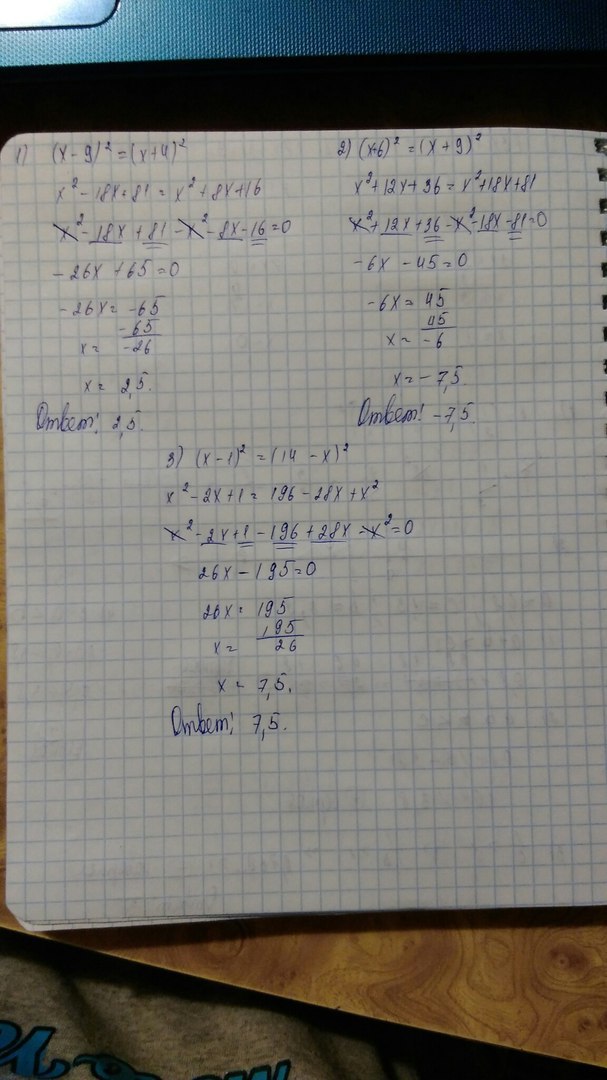 1) (x-9)² = (x+4)²
x² - 18x + 81 = x² + 8x + 16
x² - 18x + 81 - x² - 8x - 16 = 0
-26x + 65 = 0
-26x = -65
x = -65/-26
x = 2,5.
Ответ: 2,5.
2) (x+6)² = (x+9)²
x² + 12x + 36 = x² + 18x + 81
x² + 12x + 36 - x² - 18x - 81 = 0
-6x - 45 = 0
-6x = 45
x = 45/-6
x = -7,5.
Ответ: -7,5.
3) (x-1)² = (14-x)²
x² - 2x + 1 = 196 - 28x + x²
x² - 2x + 1 - 196 + 28x - x² = 0
26x - 195 = 0
26x = 195
x = 195/26
x = 7,5.
Ответ: 7,5.